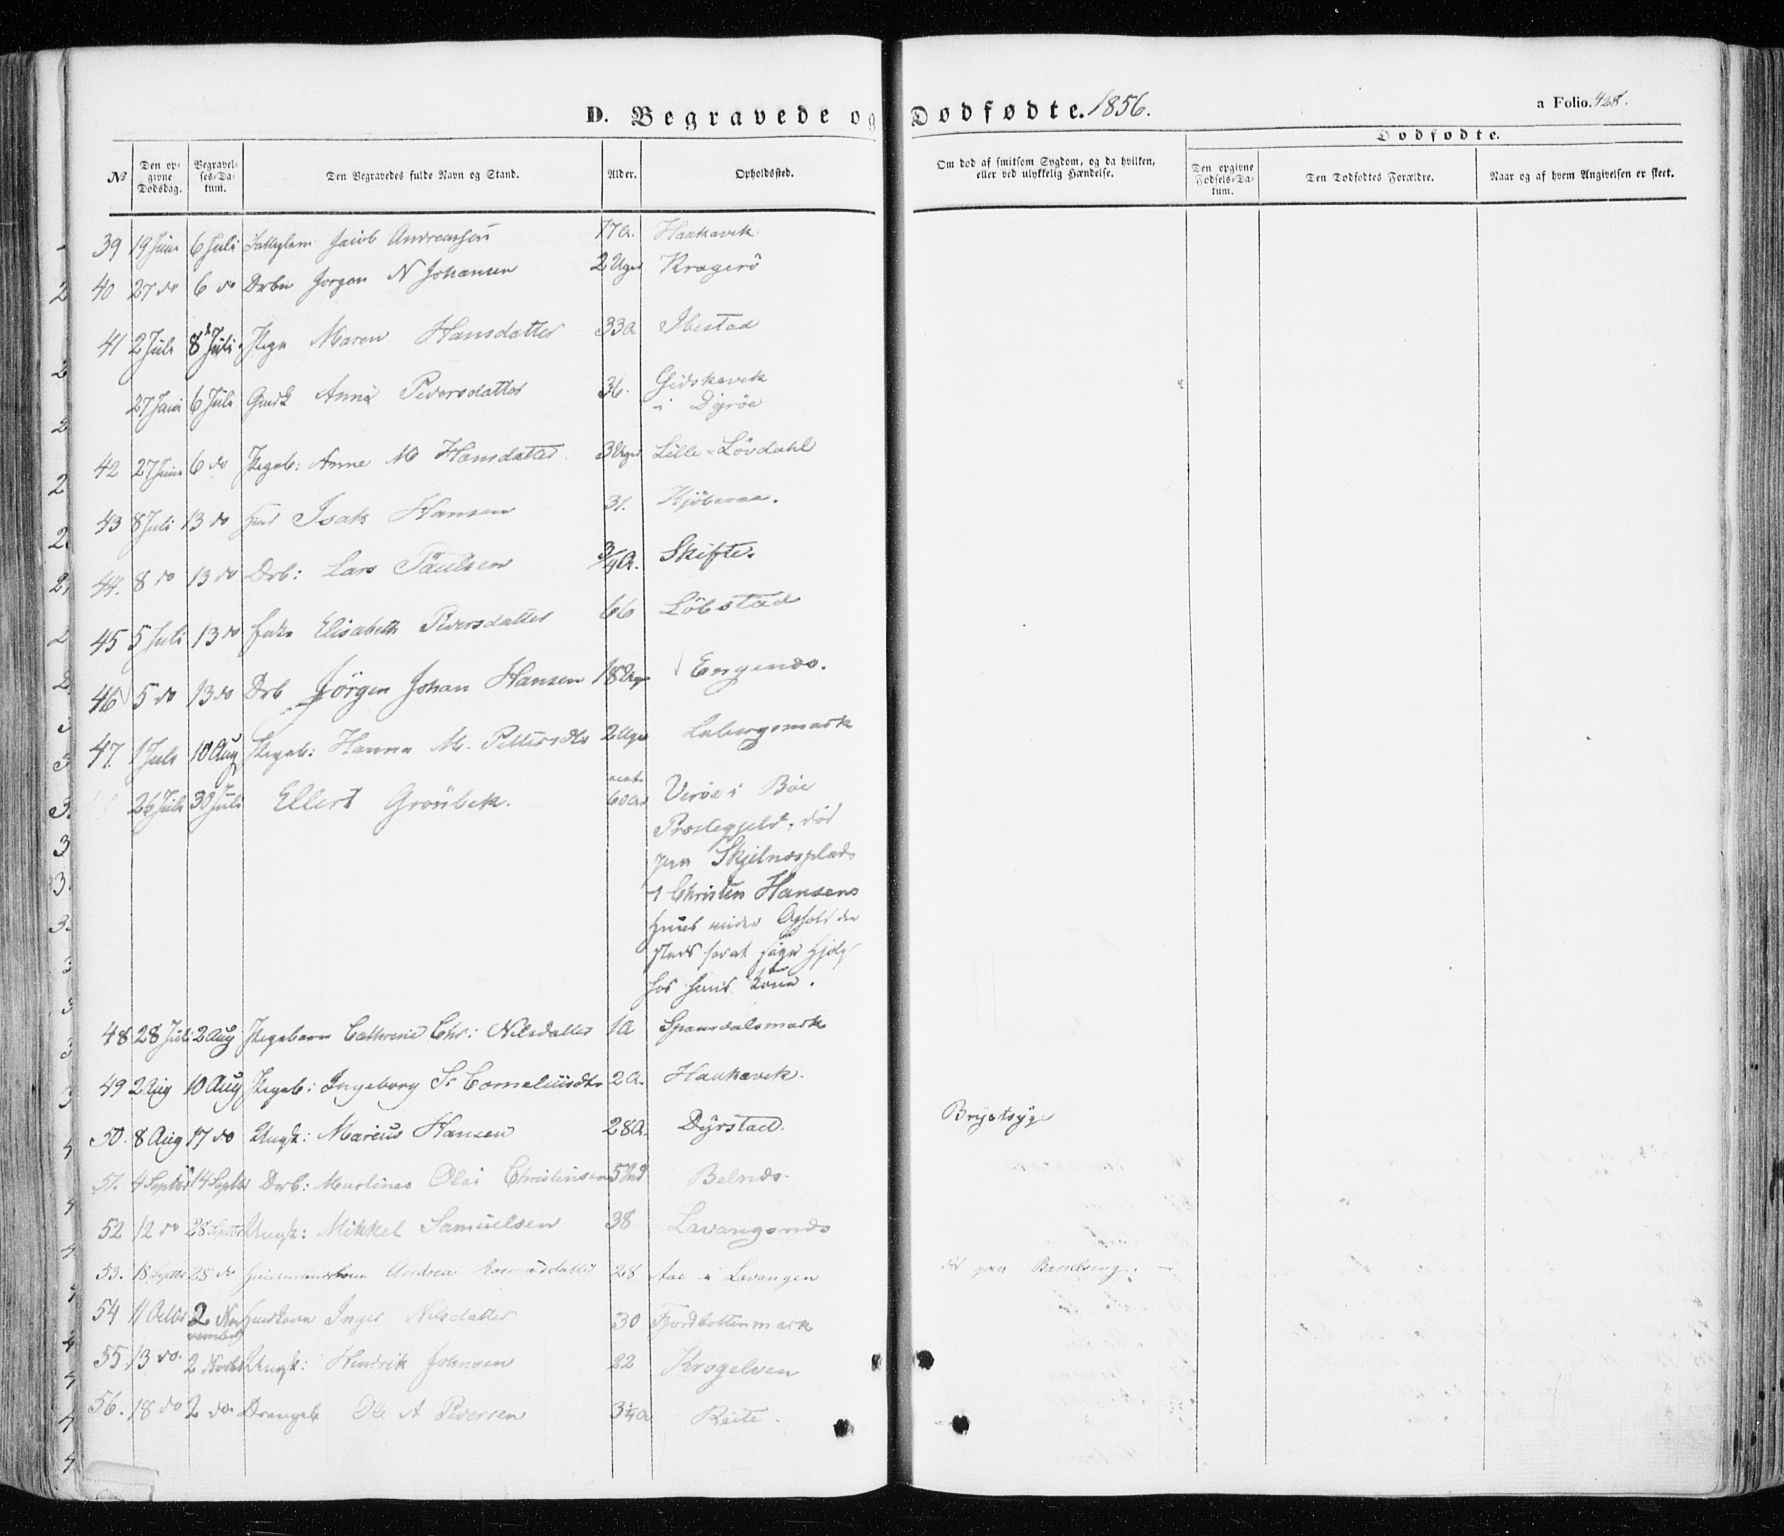 D. Begravede og Dødfødte. 1856.
a Folio. 428.
Dødfødte.
No
Den opgivne Dødsdag.
Begravelses-Datum.
Den Begravedes fulde Navn og Stand.
Alder.
Opholdssted.
Om død af smitsom Sygdom, og da hvilken, eller ved ulykkelig Hændelse.
Den opgivne Fødsels-Datum.
Den Dødfødtes Forældre.
Naar og af hvem Angivelsen er skeet.
39 19 Juni 6 Juli Jacob Andreassen 17 A. Haukavik
40 27 do 6 do Drbn Jørgen N Johansen 2 Uger Kragerö
41 2 Juli 8 Juli Pige Maren Hansdatter 33 A Ibestad
27 Juni 6 Juli Anna Pedersdatter 36. Gidskevik
i Dyröe
42 27 Juni 6 do Pigeb: Anne M Hansdatter 3 Uger Lille-Lövdahl
43 8 Juli 13 do Isak Hansen 31.
44. 8 do 13 do Drb: Lars Paulsen 3/4 A. Skifte.
45 5 Juli 13 do Enke Elisabeth Pedersdatter 66 Löbstad
46 5 do 13 do Drb Jörgen Johan Hansen 18 Uger Engenæs.
47. 1 Juli 10 Aug Pigeb: Hanna M. Pettersdtr 2 Uger Labergsmark
26 Juli 30 Juli Ellert Grönbek. 60 Aar Veröe i Böe
Præstegjeld, död
paa Skjelnesplads
i Christen Hansens
Huus under Ophold der
steds for at søge Hjelp
hos hans Kone.
48 28 Juli 2 Aug Pigebarn Cathrine Chr: Nilsdatter 1 A Spansdalsmark
49 2 Aug 10 Aug Pigeb: Ingeborg S. Corneliusdtr 2 A. Haukavik.
50. 8 Aug 17 do Ungk: Marius Hansen 28 A. Dyrstad. Brystsyge
51. 4 Septbr 14 Septbr Drb: Martines Olai Christensen Belnæs.
52 12 do 28 Septbr Ungk: Mikkel Samuelsen 38 Lavangsnæs
53. 18 Septbr 28 do Huusmandskone Andrea Rasmusdatter 28 Aae i Lavangen död paa Barselseng.
54 11 Octbr 2 November Huuskone Inger Nilsdatter 30 Fjordbottenmark
55 13 do 2 Novbr Ungk: Hendrik Johnsen 22 Krogelven
56. 18 do 2 do Drengeb Ole A Pedersen 3 1/4 A Röite.